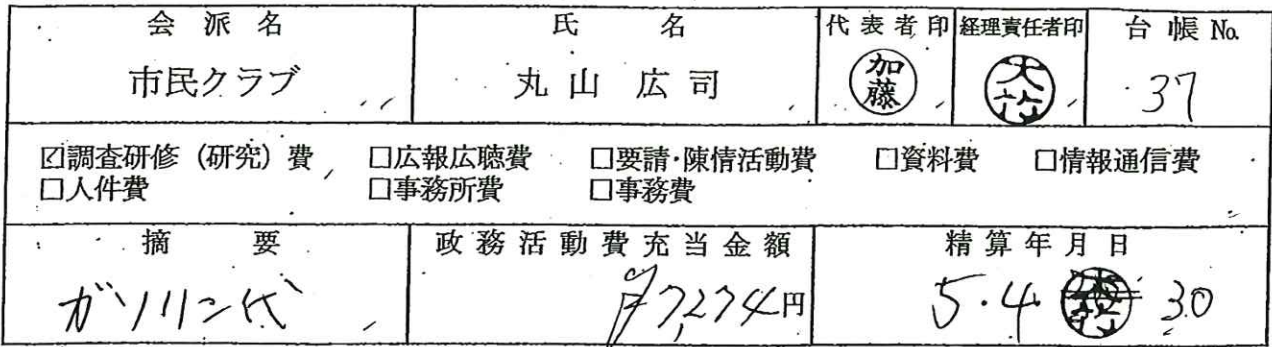 会派名 氏名 代表者印 経理責任者印 台帳No.
市民クラブ 丸山広司 加藤 大竹 37
☑調査研修(研究)費 □広報広聴費 □要請・陳情活動費 □資料費 □情報通信費
□人件費 □事務所費 □事務費
摘要 政務活動費充当金額 精算年月日
ガソリン代 7,274円 5.4 30